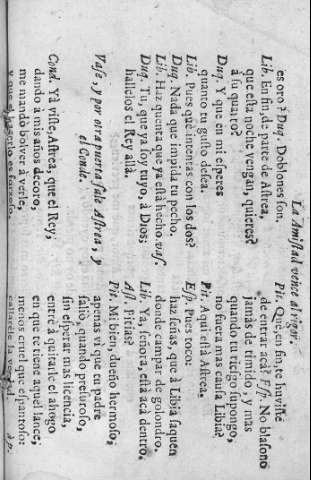 La Amistad vence al rigor.
es oro? Duq. Doblones son.
Lib. En fin, de parte de Astrea,
que esta noche vengan, quieres?
à su quarto?
Duq. Y que en mi esperes
quanto tu gusto desea.
Lib. Pues què intentas con los dos?
Duq. Nada que impida tu pecho.
Lib. Haz quenta que yà està hecho. vas.
Duq. Tu, que ya soy tuyo, à Dios;
hallelos el Rey allà.
Vase, y por otra puerta sale Astrea, y
el Conde.
Cond. Yà viste, Astrea, que el Rey,
dando à mis años decoro,
me mandò bolver à verle,
y que
Pit. Què, en fin, te huviste
de entrar acà? Esp. No blasono
jamàs de timido, y mas
quando tu riesgo supongo,
no fuera mas causa Libia?
Pit. Aqui està Astrea.
Esp. Pues toco:
haz señas, que à Libia saquen
donde campar de golondro.
Lib. Ya, señora, està acà dentro.
Ast. Pitias?
Pit. Mi bien, dueño hermoso;
apenas vi que tu padre
saliò, quando presuroso,
sin esperar mas licencia,
entrè à quitarle el ahogo
en que te tiene aquel lance;
menos cruel que espantoso:
ap.